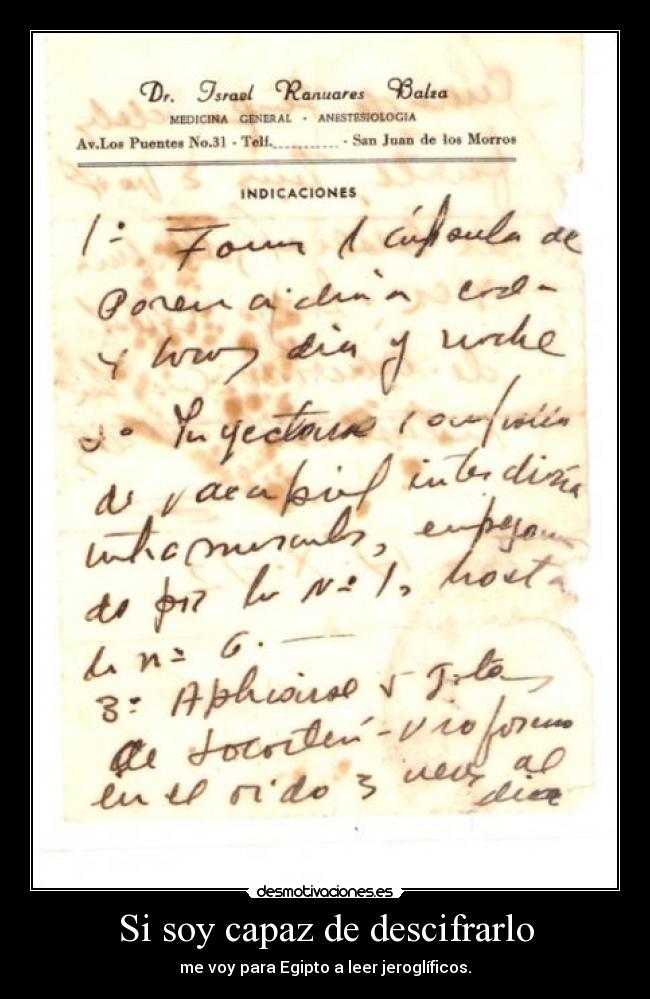 Dr. Israel Ranuares Balza
MEDICINA GENERAL - ANESTESIOLOGIA
Av.Los Puentes No.31 - Telf. - San Juan de los Morros
INDICACIONES
1º Tomar 1 cápsula de
cada
4 horas día y noche
2º Inyectarse 1
de interdiaria
intramuscular, empezan
do por la Nº 1, hasta
la nº 6.
3º Aplicarse 5 gotas
de Locorten-Vioformo
en el oido 3 veces al
día
desmotivaciones.es
Si soy capaz de descifrarlo
me voy para Egipto a leer jeroglíficos.